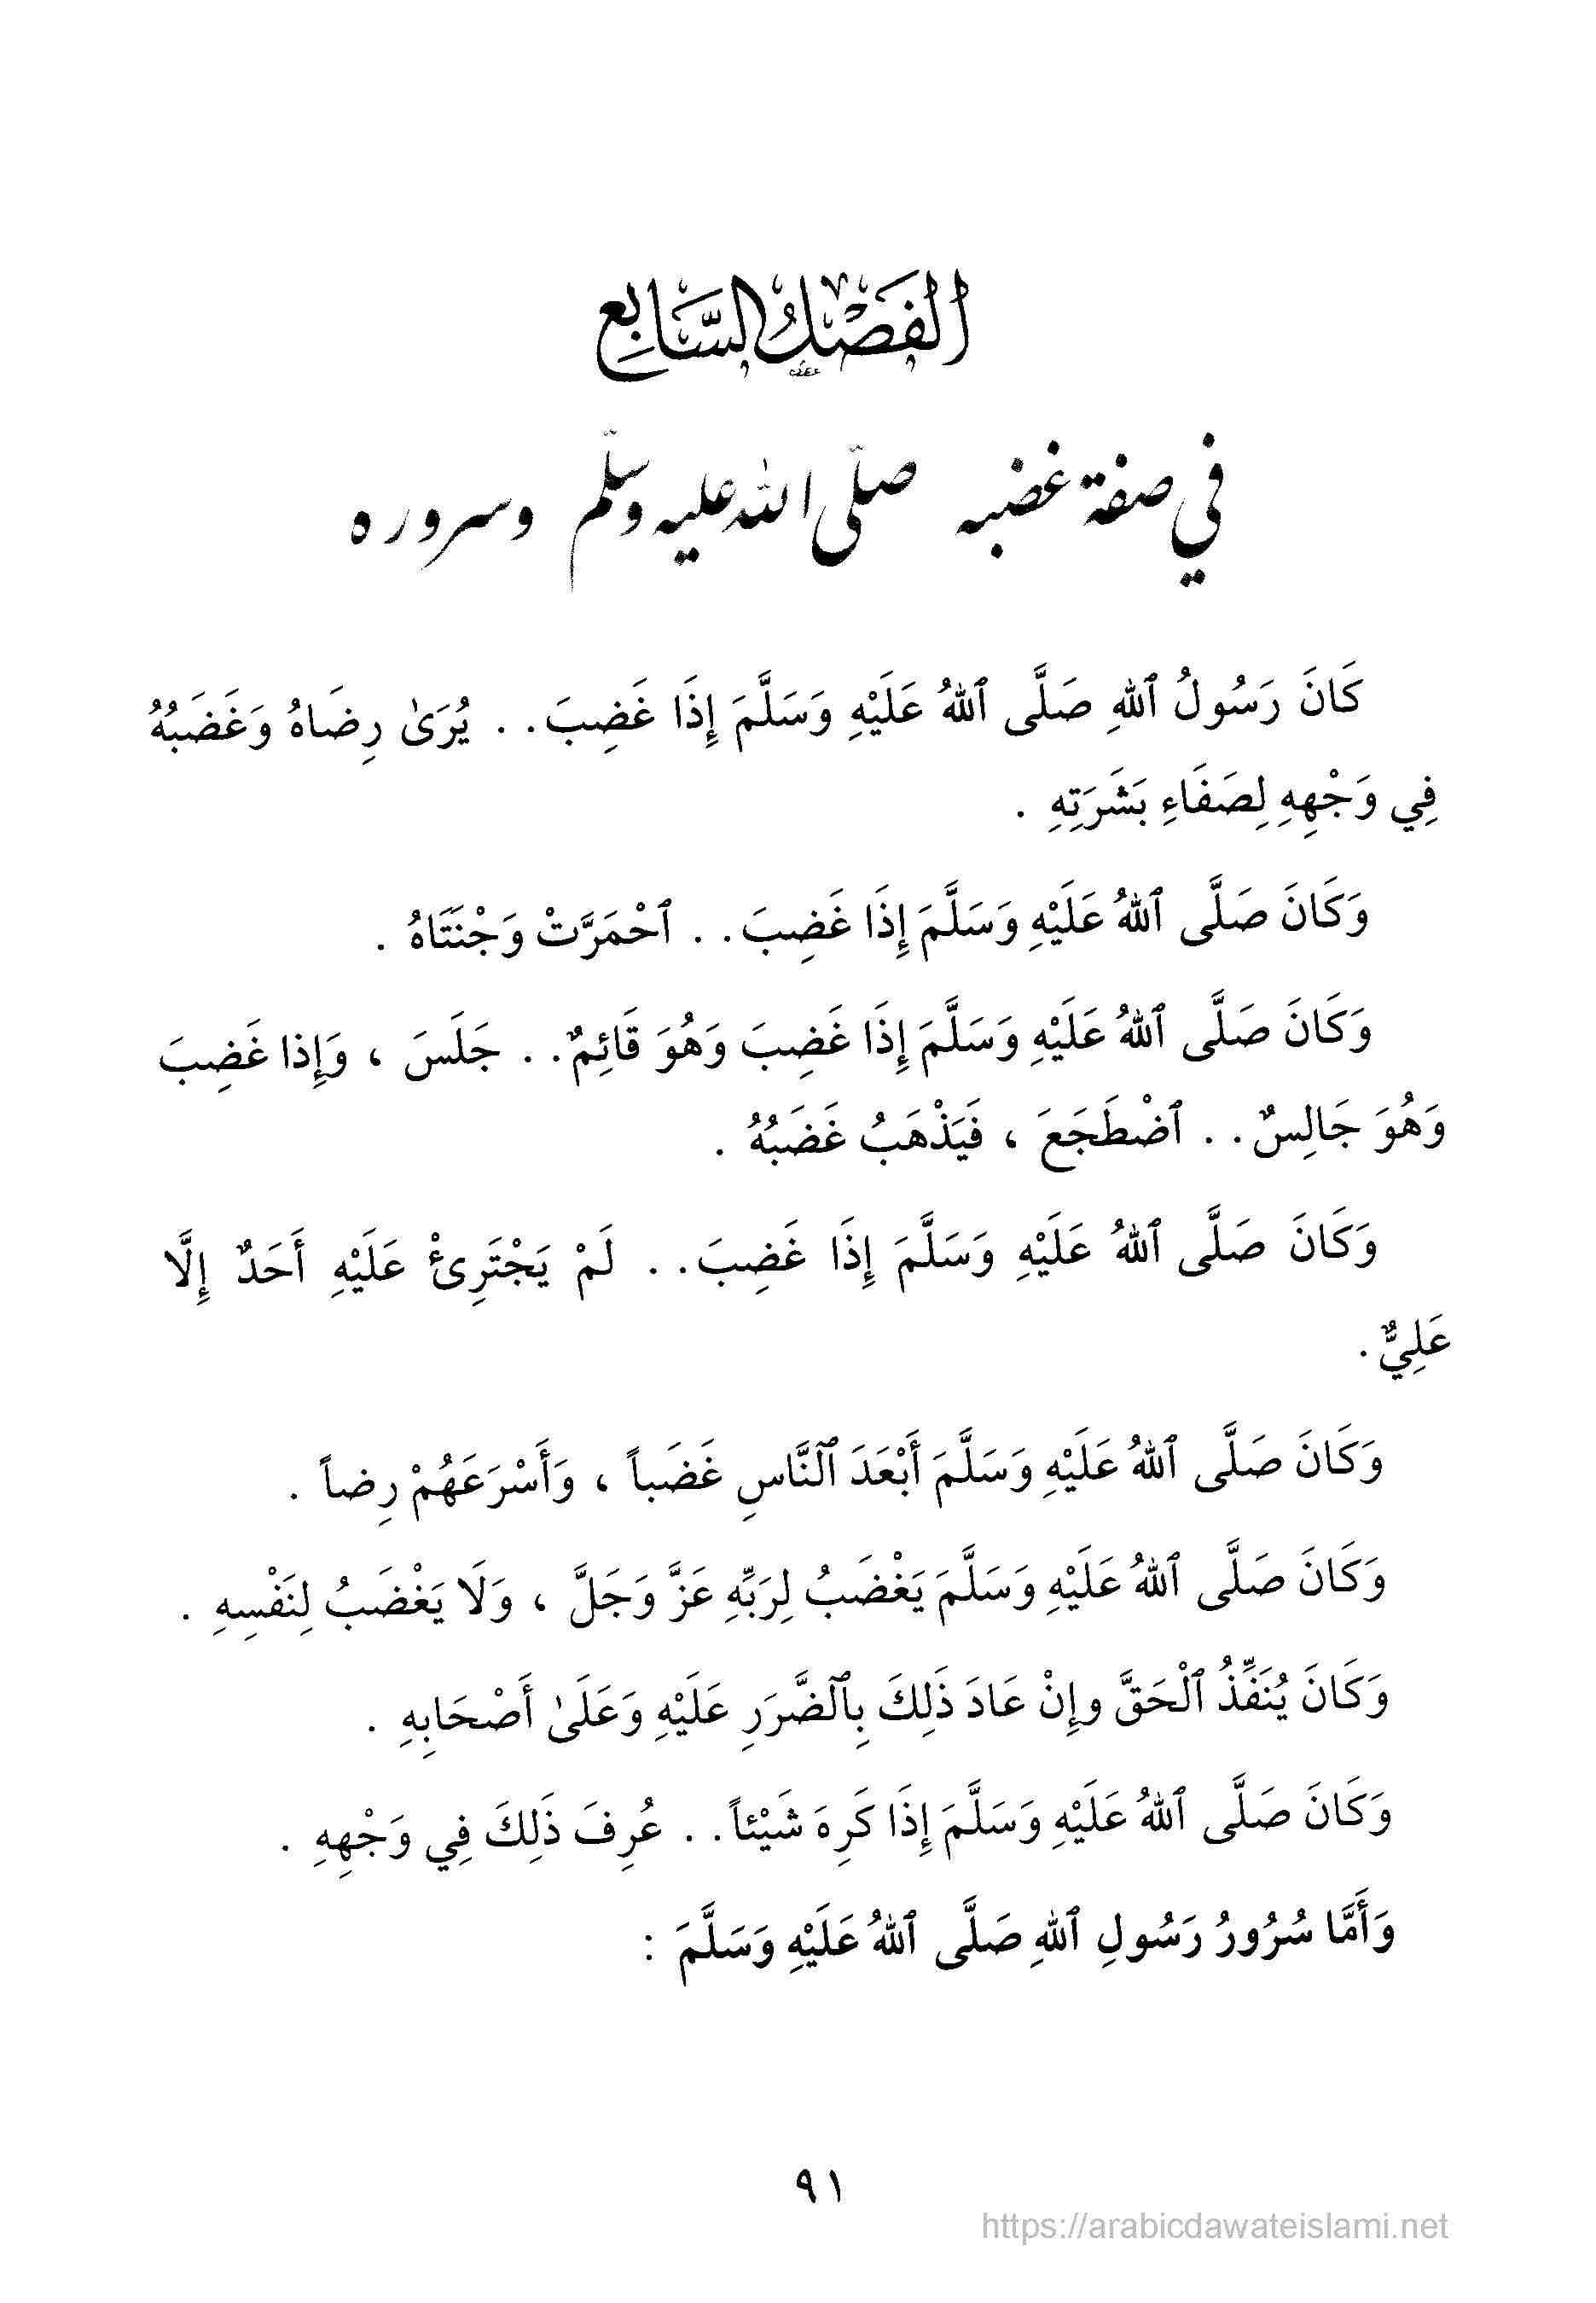 الفَصْلُ السَّابِع
في صفة غضبه صلّى الله عليه وسلّم وسروره
كَانَ رَسُولُ ٱللهِ صَلَّى ٱللهُ عَلَيْهِ وَسَلَّمَ إِذَا غَضِبَ . . يُرَىٰ رِضَاهُ وَغَضَبُهُ
فِي وَجْهِهِ لِصَفَاءِ بَشَرَتِهِ .
وَكَانَ صَلَّى ٱللهُ عَلَيْهِ وَسَلَّمَ إِذَا غَضِبَ . . ٱحْمَرَّتْ وَجْنَتَاهُ .
وَكَانَ صَلَّى ٱللهُ عَلَيْهِ وَسَلَّمَ إِذَا غَضِبَ وَهُوَ قَائِمٌ . . جَلَسَ ، وَإِذا غَضِبَ
وَهُوَ جَالِسٌ . . ٱضْطَجَعَ ، فَيَذْهَبُ غَضَبُهُ .
وَكَانَ صَلَّى ٱللهُ عَلَيْهِ وَسَلَّمَ إِذَا غَضِبَ . . لَمْ يَجْتَرِئْ عَلَيْهِ أَحَدٌ إِلَّا
عَلِيٌّ .
وَكَانَ صَلَّى ٱللهُ عَلَيْهِ وَسَلَّمَ أَبْعَدَ ٱلنَّاسِ غَضَباً ، وَأَسْرَعَهُمْ رِضاً .
وَكَانَ صَلَّى ٱللهُ عَلَيْهِ وَسَلَّمَ يَغْضَبُ لِرَبِّهِ عَزَّ وَجَلَّ ، وَلَا يَغْضَبُ لِنَفْسِهِ .
وَكَانَ يُنَفِّذُ ٱلْحَقَّ وإِنْ عَادَ ذَلِكَ بِٱلضَّرَرِ عَلَيْهِ وَعَلَىٰ أَصْحَابِهِ .
وَكَانَ صَلَّى ٱللهُ عَلَيْهِ وَسَلَّمَ إِذَا كَرِهَ شَيْئاً . . عُرِفَ ذَلِكَ فِي وَجْهِهِ .
وَأَمَّا سُرُورُ رَسُولِ ٱللهِ صَلَّى ٱللهُ عَلَيْهِ وَسَلَّمَ :
٩١
https://arabicdawateislami.net